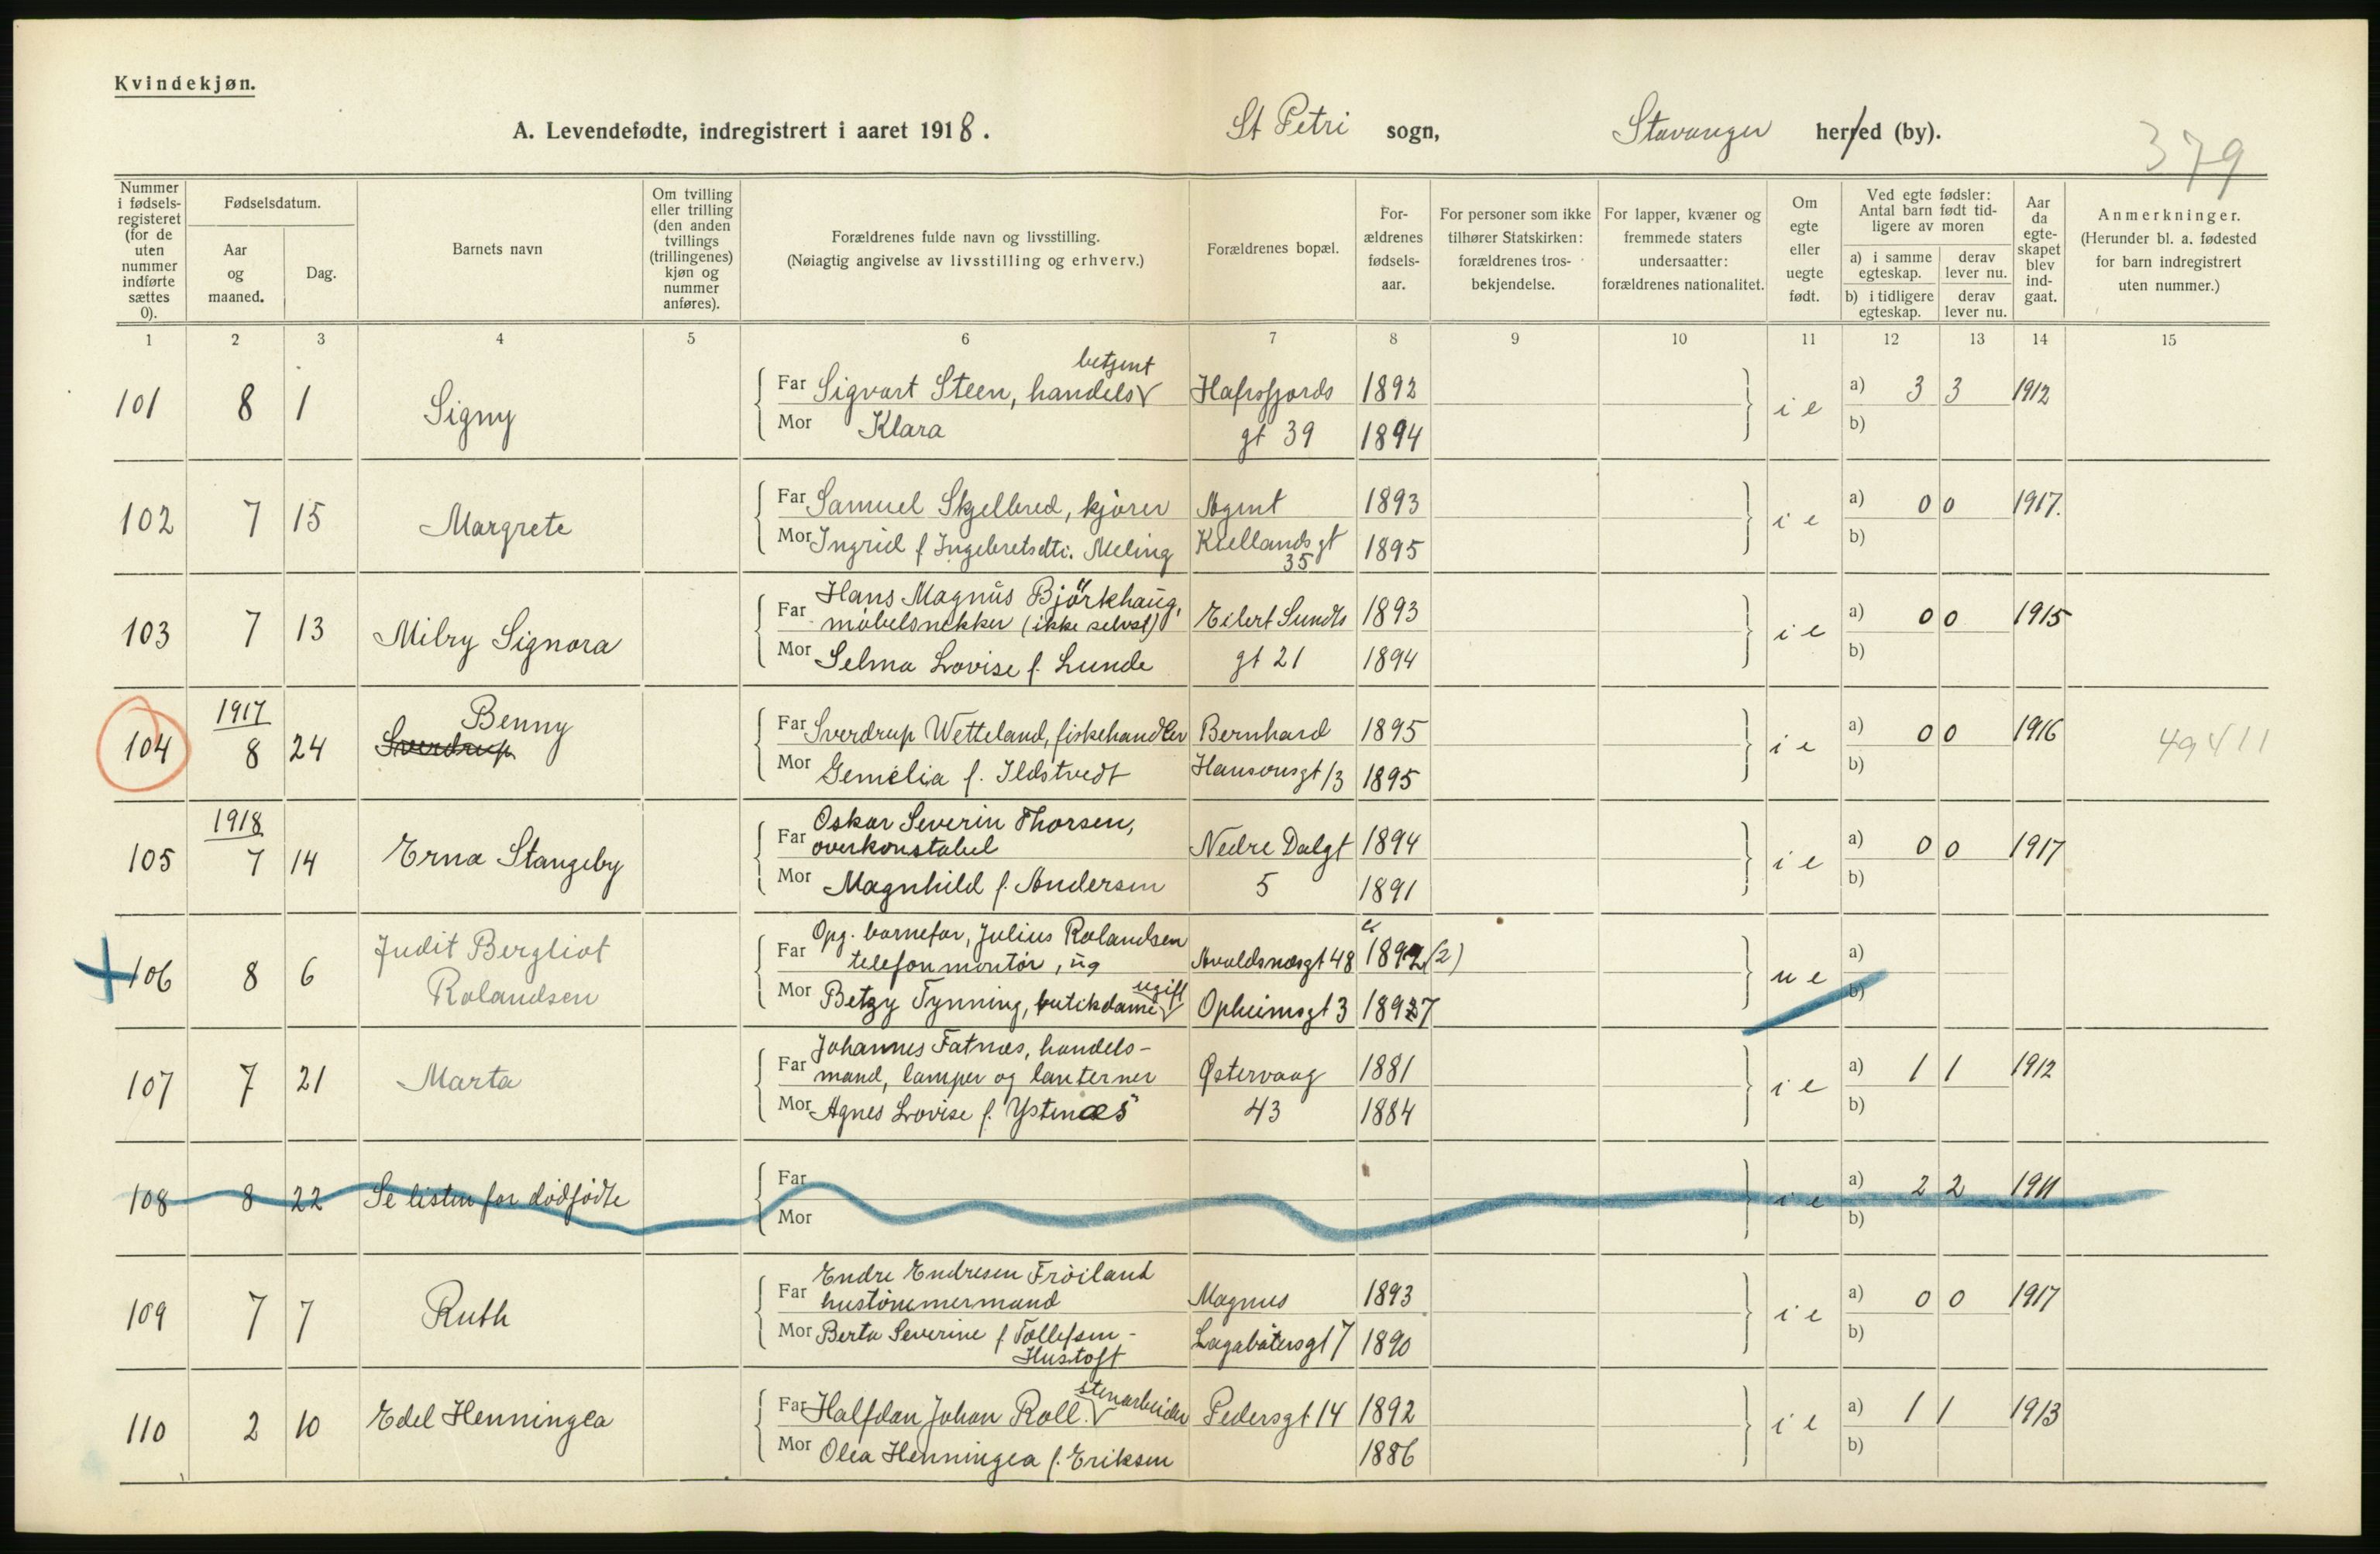 Kvindekjøn.
A. Levendefødte, indregistrert i aaret 1918.
St Petri sogn,
Stavanger herred (by).
379
Nummer i fødselsregisteret (for de uten nummer indførte sættes 0).
Fødselsdatum.
Aar og maaned.
Dag.
Barnets navn
Om tvilling eller trilling (den anden tvillings (trillingenes) kjøn og nummer anføres).
Forældrenes fulde navn og livsstilling.
(Nøiagtig angivelse av livsstilling og erhverv.)
Forældrenes bopæl.
For-ældrenes fødsels-aar.
For personer som ikke tilhører Statskirken: forældrenes tros-bekjendelse.
For lapper, kvæner og fremmede staters undersaatter: forældrenes nationalitet.
Om egte eller uegte født.
Ved egte fødsler: Antal barn født tid-ligere av moren
a) i samme egteskap.
derav lever nu.
b) i tidligere egteskap.
derav lever nu.
Aar da egte-skapet blev ind-gaat.
Anmerkninger.
(Herunder bl. a. fødested for barn indregistrert uten nummer.)
1 2 3 4 5 6 7 8 9 10 11 12 13 14 15
betjent
101 8 1 Signy Far Sigvart Steen, handels Hafrsfjords 1892 i e a) 3 3 1912
Mor Klara gt 39 1894 b)
102 7 15 Margrete Far Samuel Skjelbred, kjører Agent 1893 i e a) 0 0 1917.
Mor Ingrid f Ingebretsdtr. Meling Kiellands gt 35 1895 b)
Hans Magnus Björkhaug,
103 7 13 Milry Signora Far møbelsnekker (ikke selvst) Eilert Sundts 1893 i e a) 0 0 1915
Mor Selma Lovise f. Lunde gt 21 1894 b)
1917 Benny
104 8 24 Sverdrup Far Sverdrup Wetteland, fiskehandler Bernhard 1895 i e a) 0 0 1916
Mor Gemelia f. Ildstvedt Hansensgt 13 1895 b)
1918 Oskar Severin Thorsen,
105 7 14 Erna Stangeby Far overkonstabel Nedre Dalgt 1894 i e a) 0 0 1917
Mor Magnhild f. Andersen 5 1891 b)
Judit Bergliot Opg. barnefar, Julius Rolandsen
106 8 6 Rolandsen Far telefonmontør, ug Avaldsnesgt 48 1892 (2) u e a)
ugift
Mor Betzy Tynning, butikdame Opheimsgt 3 1897 b)
Johannes Fatnæs, handels-
107 7 21 Marta Far mand, lamper og lanterner Østervaag 1881 i e a) 1 1 1912
Mor Agnes Lovise f. Ystenæs 43 1884 b)
108 8 22 Se listen for dødfødte Far i e a) 2 2 1911
Mor b)
Endre Endresen Frøiland
109 7 7 Ruth Far hustømmermand Magnus 1893 i e a) 0 0 1917
Mor Berta Severine f Tollefsen- Lagabøtersgt 7 1890 b)
Hustoft
stenarbeider
110 2 10 Edel Henningea Far Halfdan Johan Roll Pedersgt 14 1892 i e a) 1 1 1913
Mor Olea Henningea f. Eriksen 1886 b)